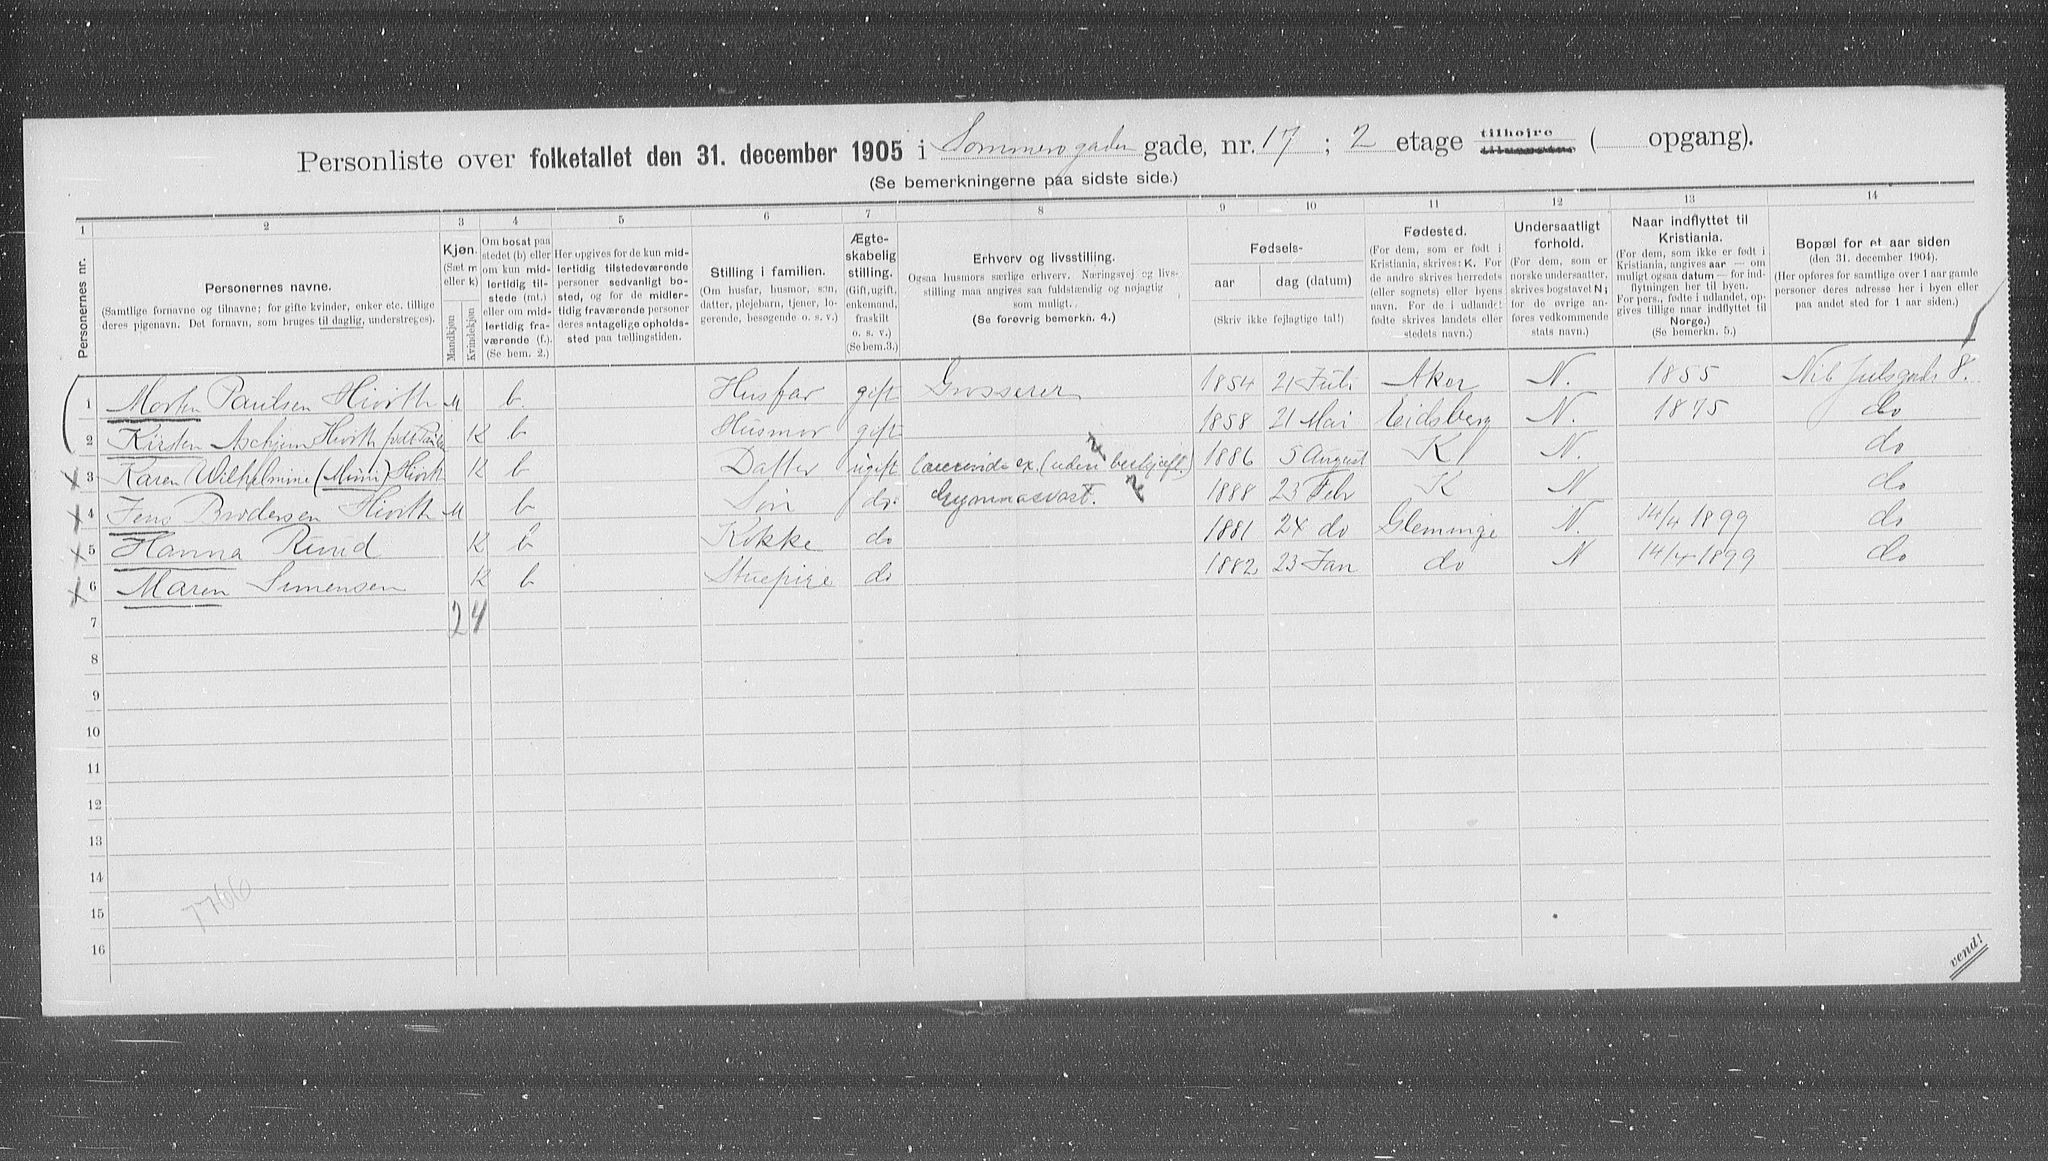 Personliste over folketallet den 31. december 1905 i Sommerogaden gade, nr. 17 ; 2 etage tilhøjre tilvenstre ( opgang).
(Se bemerkningerne paa sidste side.)
1 2 3 4 5 6 7 8 9 10 11 12 13 14
Personernes nr.
Personernes navne.
(Samtlige fornavne og tilnavne; for gifte kvinder, enker etc. tillige
deres pigenavn. Det fornavn, som bruges til daglig, understreges).
Kjøn.
(Sæt m
eller k)
Mandkjøn
Kvindekjøn
Om bosat paa
stedet (b) eller
om kun mid-
lertidig til-
stede (mt.)
eller om mid-
lertidig fra-
værende (f.).
(Se bem. 2.)
Her opgives for de kun mid-
lertidig tilstedeværende
personer sedvanligt bo-
sted, og for de midler-
tidig fraværende personer
deres antagelige opholds-
sted paa tællingstiden.
Stilling i familien.
(Om husfar, husmor, søn,
datter, plejebarn, tjener, lo-
gerende, besøgende o. s. v.)
Ægte-
skabelig
stilling.
(Gift, ugift,
enkemand,
fraskilt
o. s. v.)
(Se bem.3.)
Erhverv og livsstilling.
Ogsaa husmors særlige erhverv. Næringsvej og livs-
stilling maa angives saa fuldstændig og nøjagtig
som muligt.
(Se forøvrig bemerkn. 4.)
Fødsels-
aar dag (datum)
(Skriv ikke fejlagtige tal!)
Fødested.
(For dem, som er født i
Kristiania, skrives: K. For
de andre skrives herredets
(eller sognets) eller byens
navn. For de i udlandet
fødte skrives landets eller
stedets navn.)
Undersaatligt
forhold.
(For dem, som er
norske undersaatter,
skrives bogstavet N;
for de øvrige an-
føres vedkommende
stats navn.)
Naar indflyttet til
Kristiania.
(For dem, som ikke er født i
Kristiania, angives aar — om
muligt ogsaa datum — for ind-
flytningen her til byen.
For pers., fødte i udlandet, op-
gives tillige naar indflyttet til
Norge.)
(Se bemerkn. 5.)
Bopæl for et aar siden
(den 31. december 1904).
(Her opføres for samtlige over 1 aar gamle
personer deres adresse her i byen eller
paa andet sted for 1 aar siden.)
1 Morten Paulsen Hiorth M b Husfar gift Grosserer 1854 21 Juli Aker N. 1855 Nils Juelsgade 8.
2 Kirsten Hiorth født K b Husmor gift 1858 21 Mai Eidsberg N. 1875 do
x 3 Karen Wilhelmine (Mimi) Hiorth K b Datter ugift Lærerinde ex. (uden beskjæft.) 1886 5 August K N. do
x 4 Jens Brodersen Hiorth M b Søn do Gymnasiast. 1888 23 Febr K N do
x 5 Hanna Rund K b Kokke do 1881 24 do Glemminge N. 14/4 1899 do
x 6 Maren Simensen K b Stuepige do 1882 23 Jan do N 14/4 1899 do
7 2 4
8
9
10
11
12
13
14
15
16
vend!